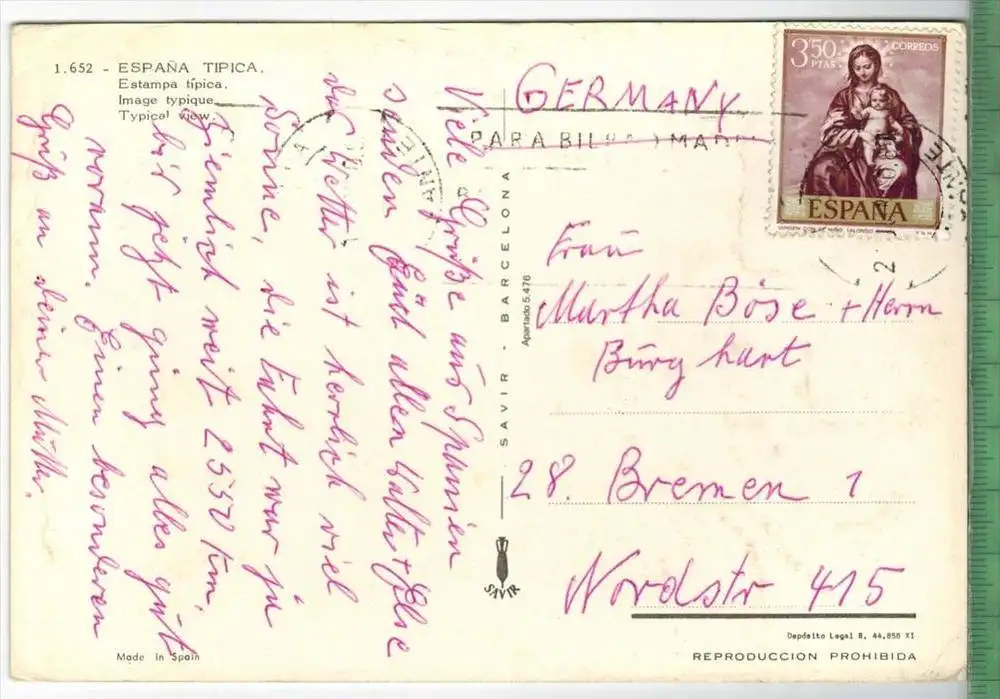 1.652 - ESPAÑA TIPICA.
Estampa típica.
Image typique.
Typical view.
Viele Grüße aus Spanien
senden Euch allen Walter + Else
das Wetter ist herrlich viel
Sonne, die Fahrt war ja
Ziemlich weit 2550 km,
bis jezt ging alles gut
vorann. Einen besonderen
Gruß an deine Mutter.
Made in Spain
SAVIR - BARCELONA
Apartado 5.476
SAVIR
GERMANY
3'50 PTAS
CORREOS
ESPAÑA
Frau
Martha Böse + Herrn
Burghart
28. Bremen 1
Nordstr 415
Depósito Legal B. 44.858 XI
REPRODUCCION PROHIBIDA